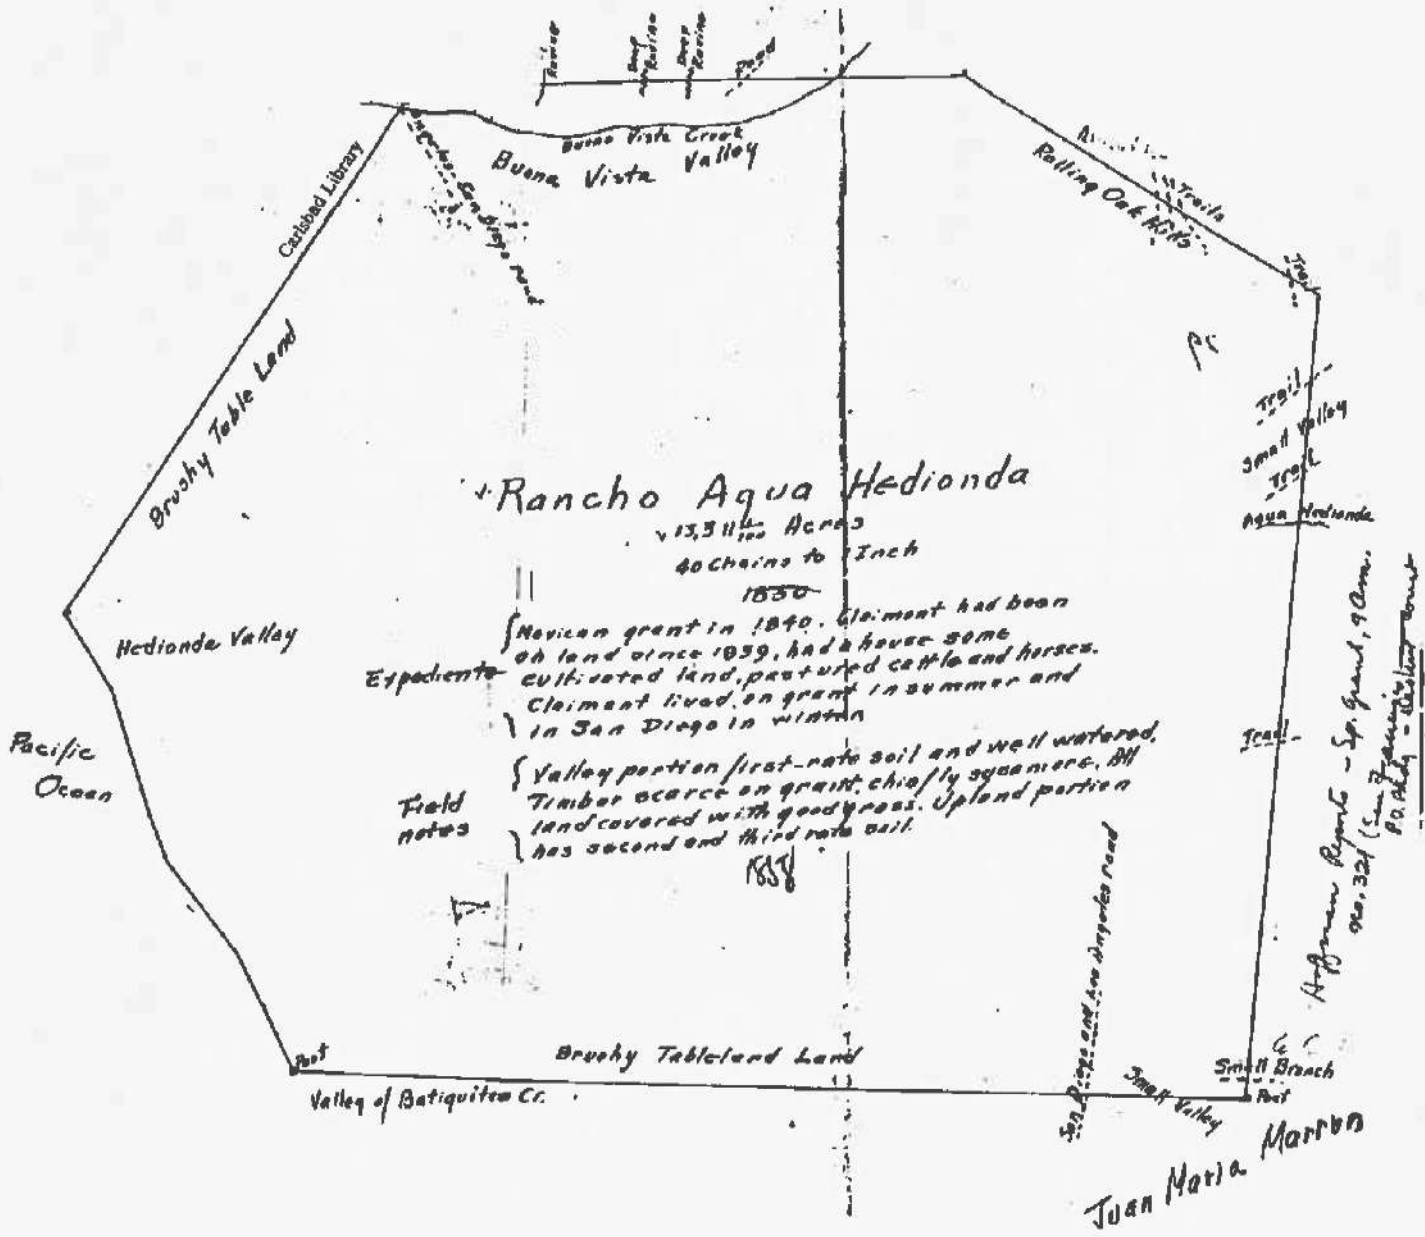 Ravine
Deep
Ravine
Deep
Ravine
Road
Buena Vista Creek
Buena Vista Valley
Angeles San Diego road
Carlsbad Library
Brushy Table Land
Rolling Oak Hills
Trails
Trail
Trail
Small Valley
Trail
Aqua Hedionda
Rancho Aqua Hedionda
13,311 Acres
40 Chains to 1 Inch
1850
Hedionda Valley
Pacific
Ocean
Expediente
Mexican grant in 1840. Claimant had been
on land since 1839, had a house some
cultivated land, pastured cattle and horses.
Claimant lived on grant in summer and
in San Diego in winter
Field
notes
Valley portion first-rate soil and well watered.
Timber scarce on grant, chiefly sycamore. All
land covered with good grass. Upland portion
has second and third rate soil.
Trail
San Diego and Los Angeles road
Hoffman Reports - Sp. grant, 9 Am.
no. 321
Post
Brushy Tableland Land
Valley of Batiquitos Cr.
Small Valley
Small Branch
Post
Juan Maria Marron